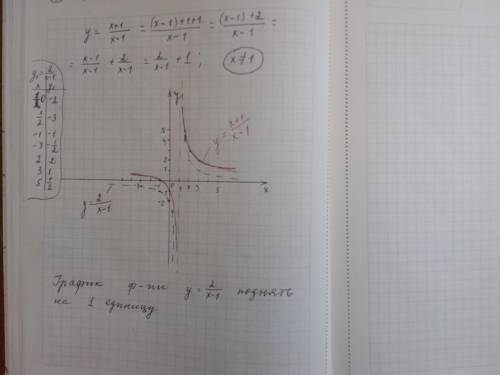 y = \frac{x+1}{x-1} = \frac{(x-1)+1+1}{x-1} = \frac{(x-1)+2}{x-1} =
= \frac{x-1}{x-1} + \frac{2}{x-1} = \frac{2}{x-1} + 1 ; x ≠ 1
y₁ = \frac{2}{x-1}
x y₁
0 -2
-1 -1
-3 -\frac{1}{2}
2 2
3 1
5 \frac{1}{2}
y = \frac{x+1}{x-1}
y = \frac{2}{x-1}
x
График ф-ии y = \frac{2}{x-1} поднять
на 1 единицу.